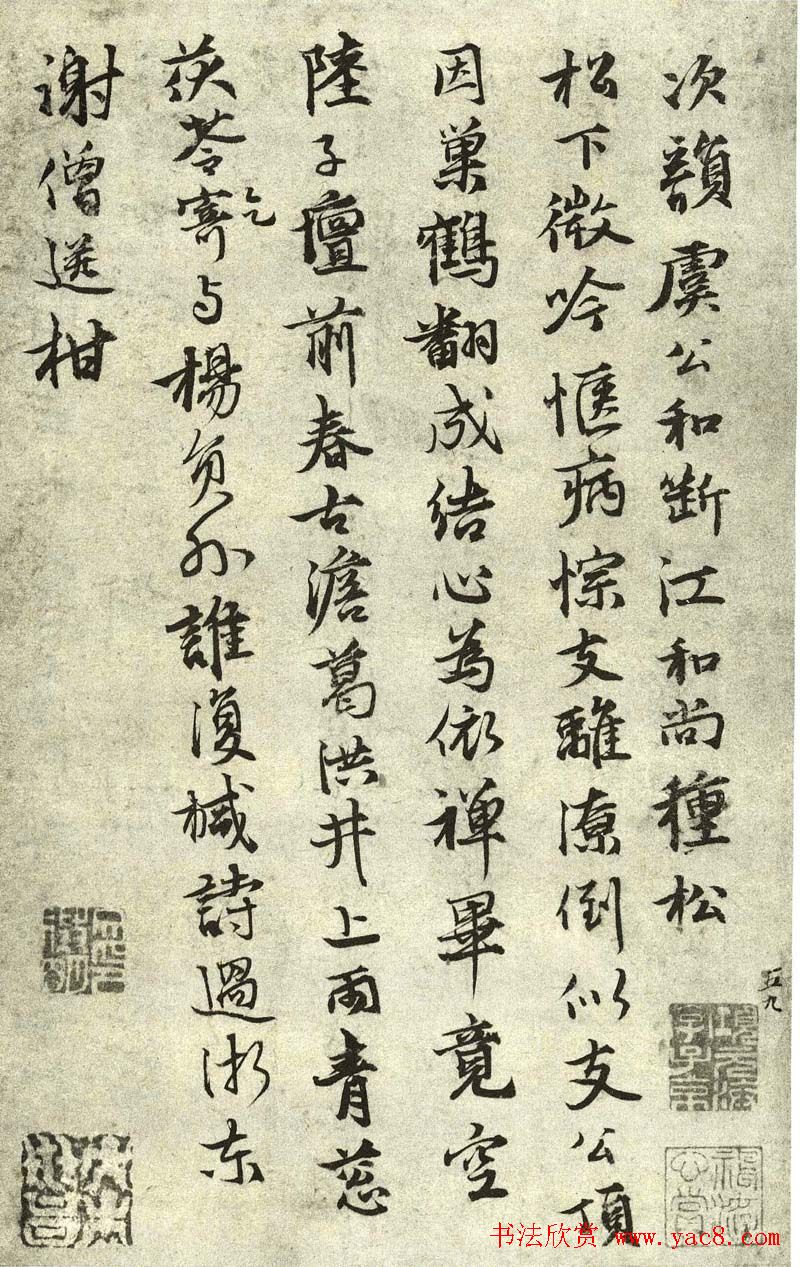 次韻虞公和斷江和尚種松
松下微吟愜病悰支離潦倒似支公頂
因巢鶴翻成結心為依禪畢竟空
陸子壇前春古澹葛洪井上雨青葱
茯苓寄乞与楊員外誰復椷詩過浙東
謝僧送柑
五九
书法欣赏 www.yac8.com